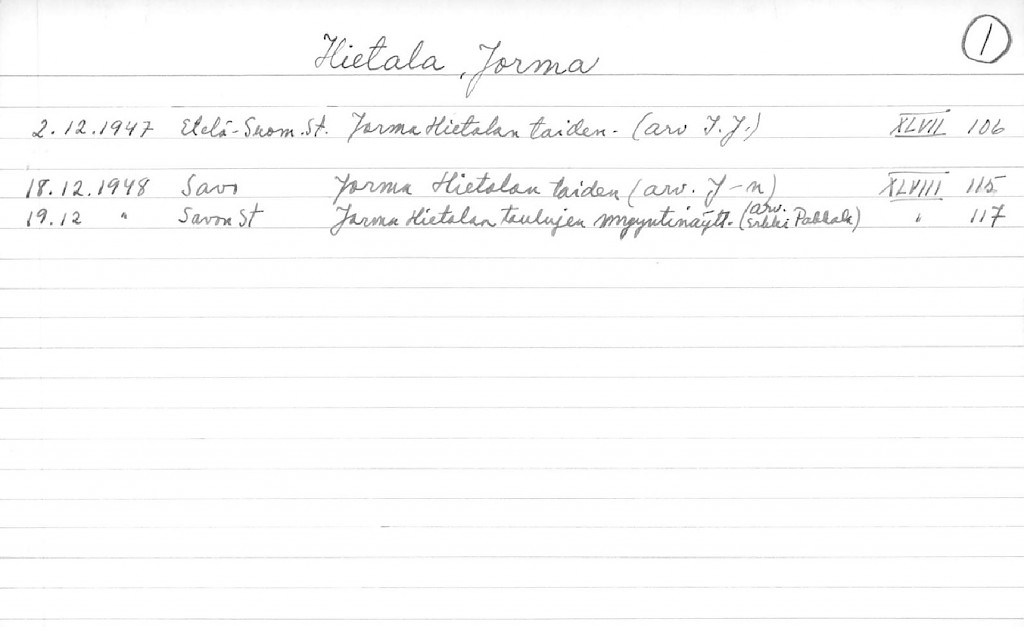 Hietala, Jorma ①
2.12.1947 Etelä-Suom.St. Jorma Hietalan taiden. (arv I.J.) XLVII 106
18.12.1948 Savo Jorma Hietalan taiden (arv. J-n) XLVIII 115
19.12 " Savon St Jorma Hietalan taulujen myyntinäytt. (arv. Erkki Pakkala) " 117